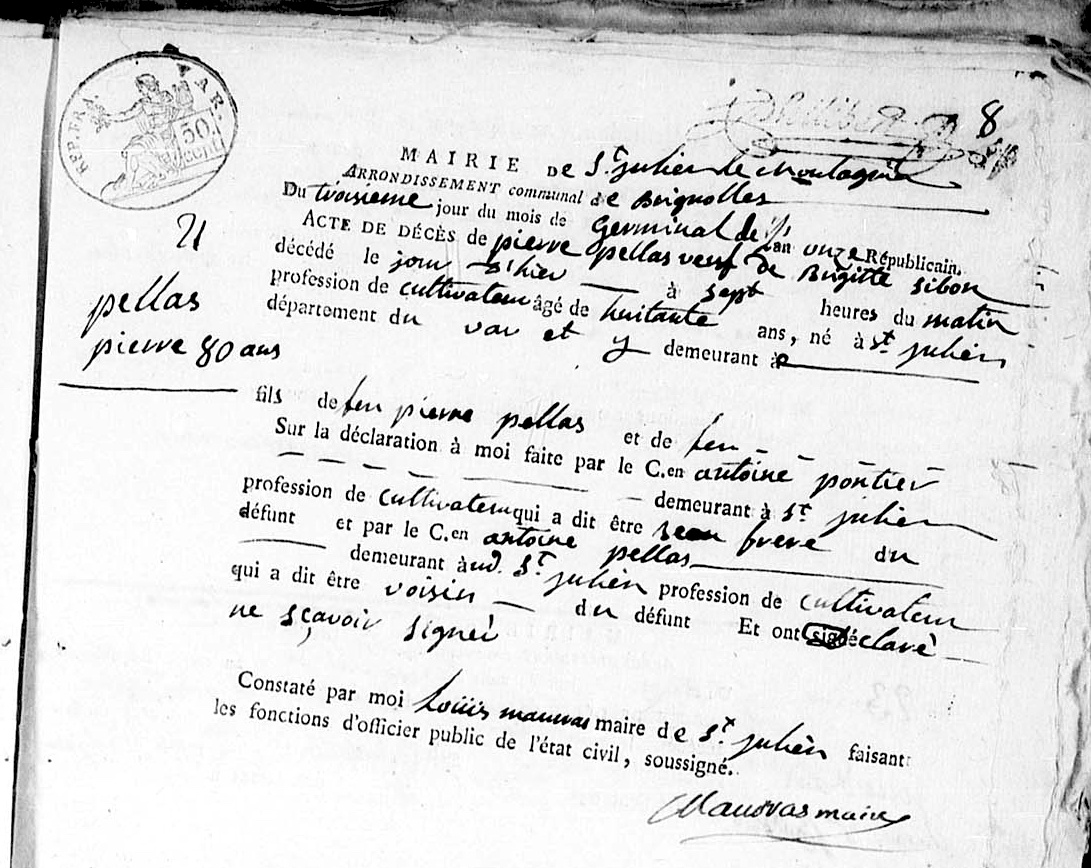 REP. FRA. VAR.
50 cent
8
MAIRIE DE St julien le Montagnié
ARRONDISSEMENT communal de Brignolles
Du troisieme jour du mois de Germinal de l'an onze Républicain.
ACTE DE DÉCÈS de pierre pellas veuf de Brigitte sibon
décédé le jour d'hier à sept heures du matin
profession de cultivateur âgé de huitante ans, né à St julien
département du var et y demeurant à
21
pellas
pierre 80 ans
fils de feu pierre pellas et de feu
Sur la déclaration à moi faite par le C.en antoine pontier
demeurant à St julien
profession de cultivateur qui a dit être frere du
défunt et par le C.en antoine pellas
demeurant aud. St julien profession de cultivateur
qui a dit être voisin du défunt Et ont déclaré
ne sçavoir signer
Constaté par moi Louis mauvas maire de St julien faisant
les fonctions d'officier public de l'état civil, soussigné.
Mauvas maire